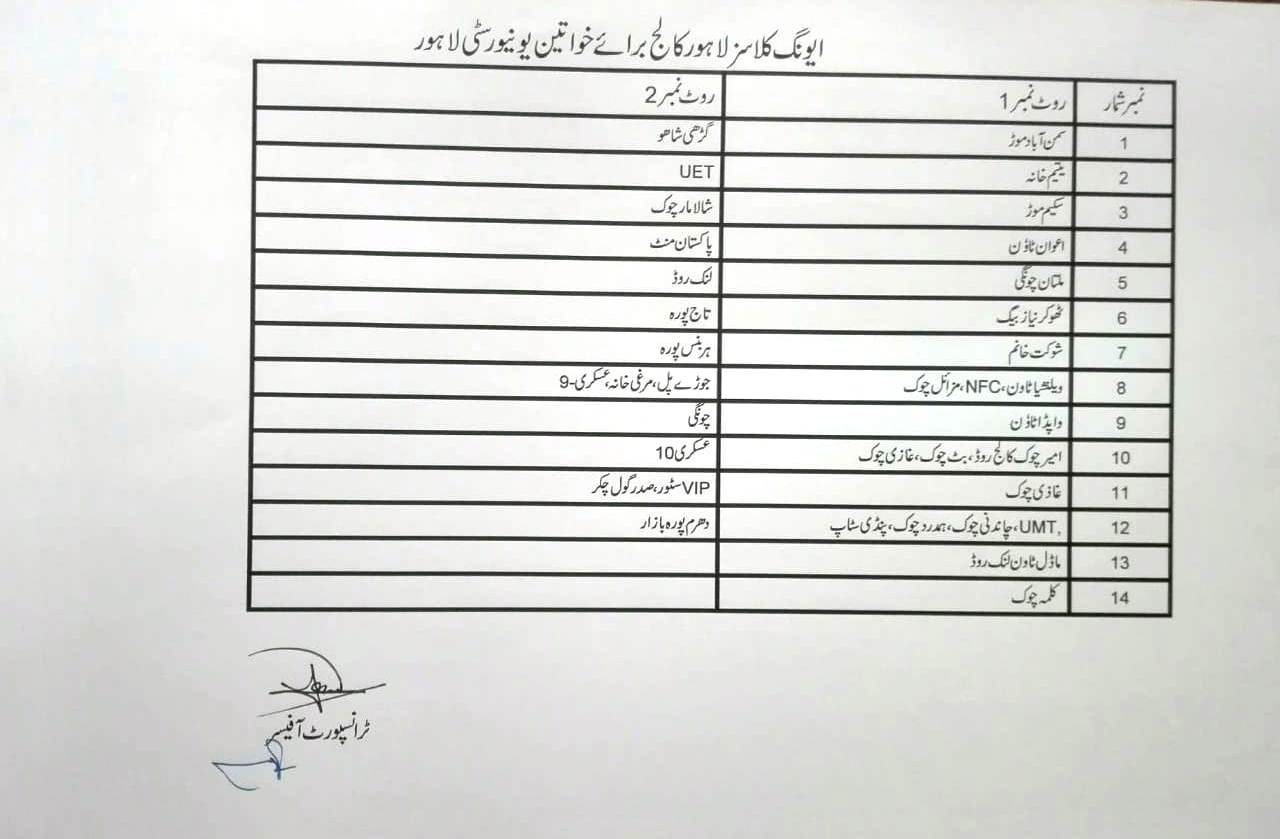 ایونگ کلاسز لاہور کالج برائے خواتین یونیورسٹی لاہور
نمبر شمار روٹ نمبر 1 روٹ نمبر 2
1 سمن آباد موڑ گڑھی شاھو
2 یتیم خانہ UET
3 سکیم موڑ شالامار چوک
4 اعوان ٹاؤن پاکستان منٹ
5 ملتان چونگی لنک روڈ
6 ٹھوکر نیاز بیگ تاج پورہ
7 شوکت خانم ہربنس پورہ
8 ویلنشیا ٹاون، NFC، مزائل چوک جوڑے پل، مرغی خانہ، عسکری-9
9 واپڈا ٹاؤن چونگی
10 امیر چوک کالج روڈ، بٹ چوک، غازی چوک عسکری 10
11 غازی چوک VIP سٹور، صدر گول چکر
12 ,UMT، چاندنی چوک، ہمدرد چوک، پنڈی سٹاپ دھرم پورہ بازار
13 ماڈل ٹاون لنک روڈ
14 کلمہ چوک
ٹرانسپورٹ آفیسر